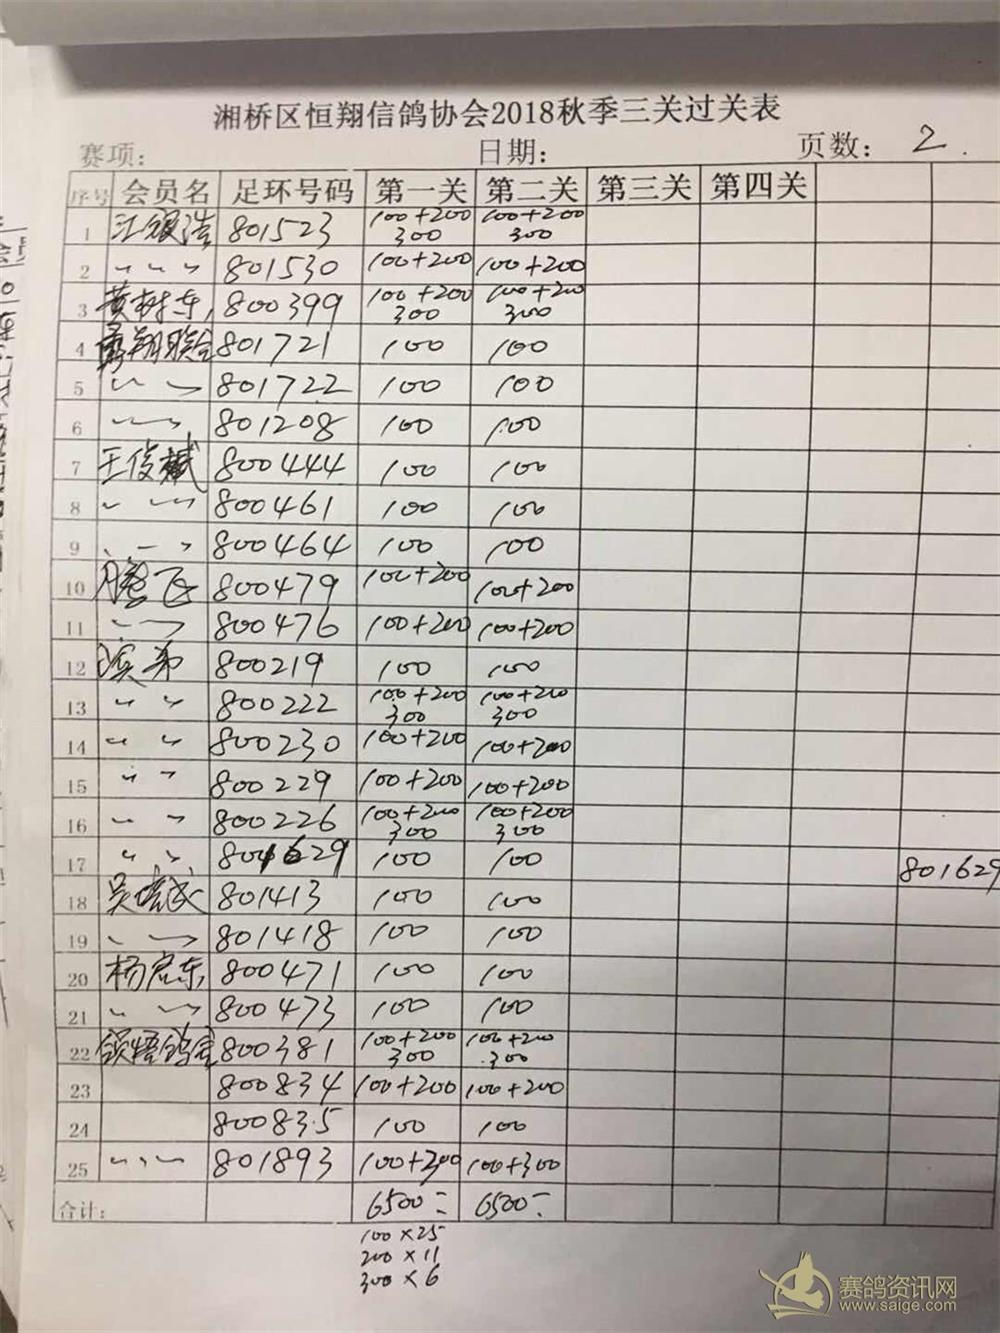 湘桥区恒翔信鸽协会2018秋季三关过关表
赛项: 日期: 页数: 2
序号 会员名 足环号码 第一关 第二关 第三关 第四关
1 江银浩 801523 100+200 300 100+200 300
2 〃 〃 〃 801530 100+200 100+200
3 黄树东 800399 100+200 300 100+200 300
4 翔联会 801721 100 100
5 〃 〃 801722 100 100
6 〃 〃 801208 100 100
7 王俊斌 800444 100 100
8 〃 〃 800461 100 100
9 〃 〃 800464 100 100
10 腾飞 800479 100+200 100+200
11 〃 〃 800476 100+200 100+200
12 滨弟 800219 100 100
13 〃 〃 800222 100+200 300 100+200 300
14 〃 〃 800230 100+200 100+200
15 〃 〃 800229 100+200 100+200
16 〃 〃 800226 100+200 300 100+200 300
17 〃 〃 801629 100 100 801629
18 吴 武 801413 100 100
19 〃 〃 801418 100 100
20 杨宏东 800471 100 100
21 〃 〃 800473 100 100
22 鸽舍 800381 100+200 300 100+200 300
23 800834 100+200 100+200
24 800835 100 100
25 〃 〃 〃 801893 100+300 100+300
合计: 6500= 6500=
100×25
200×11
300×6
赛鸽资讯网
www.saige.com